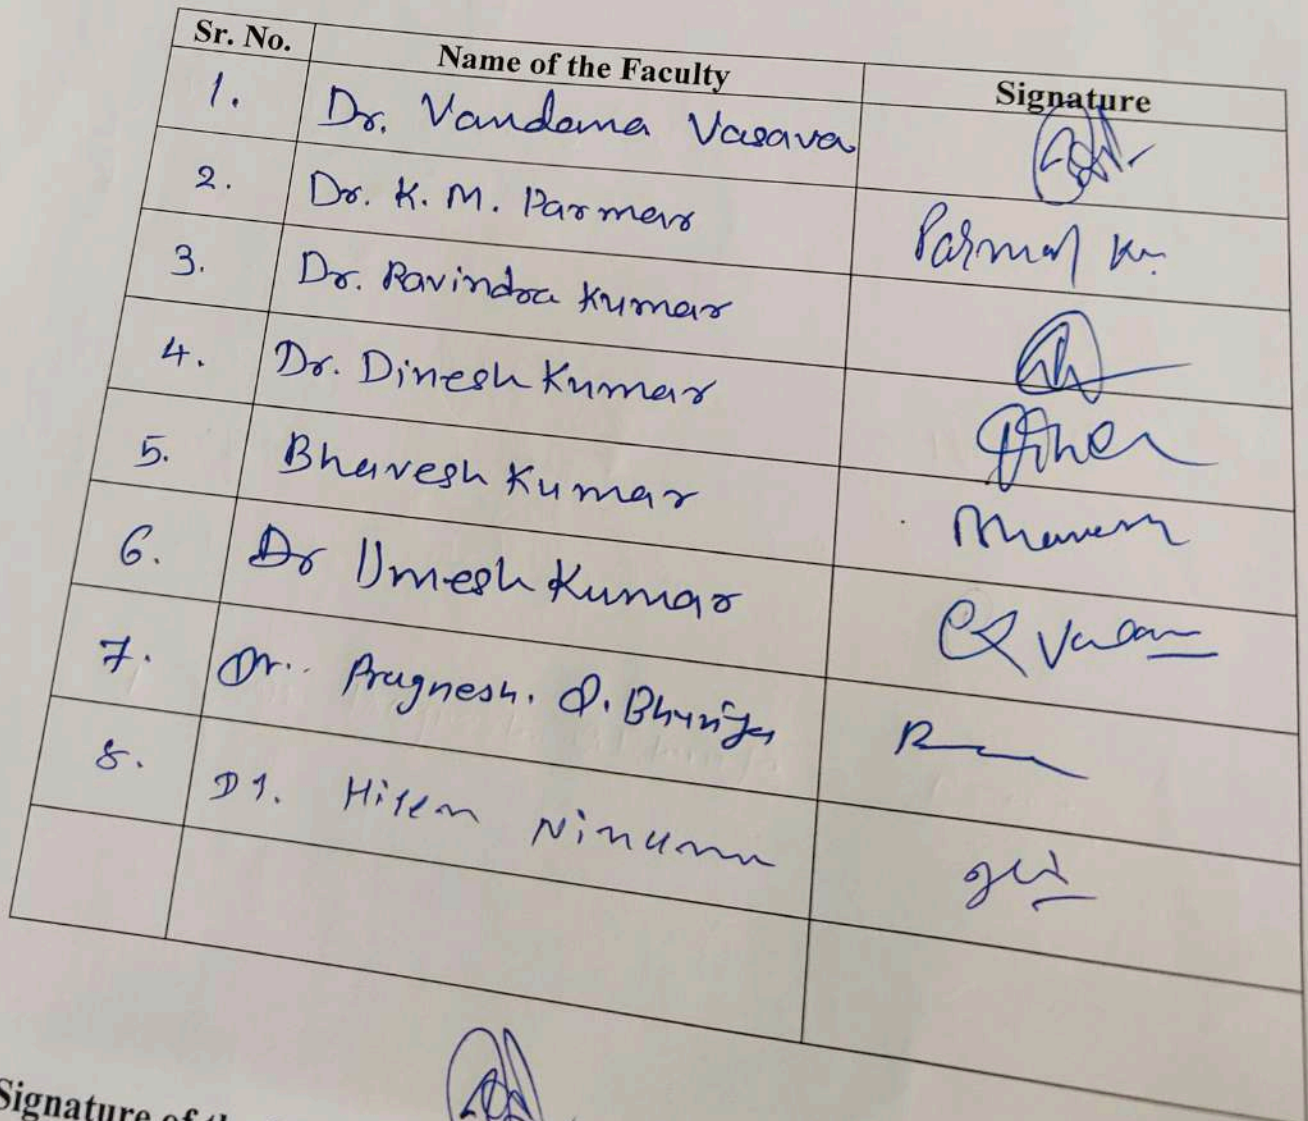 Sr. No. Name of the Faculty Signature
1. Dr. Vandana Vasava
2. Dr. K. M. Parmar Parmar K.
3. Dr. Ravindra Kumar
4. Dr. Dinesh Kumar
5. Bhavesh Kumar Bhavesh
6. Dr Umesh Kumar
7. Dr. Pragnesh. D. Bhuriya
8. Dr. Hiren Ninama
Signature of